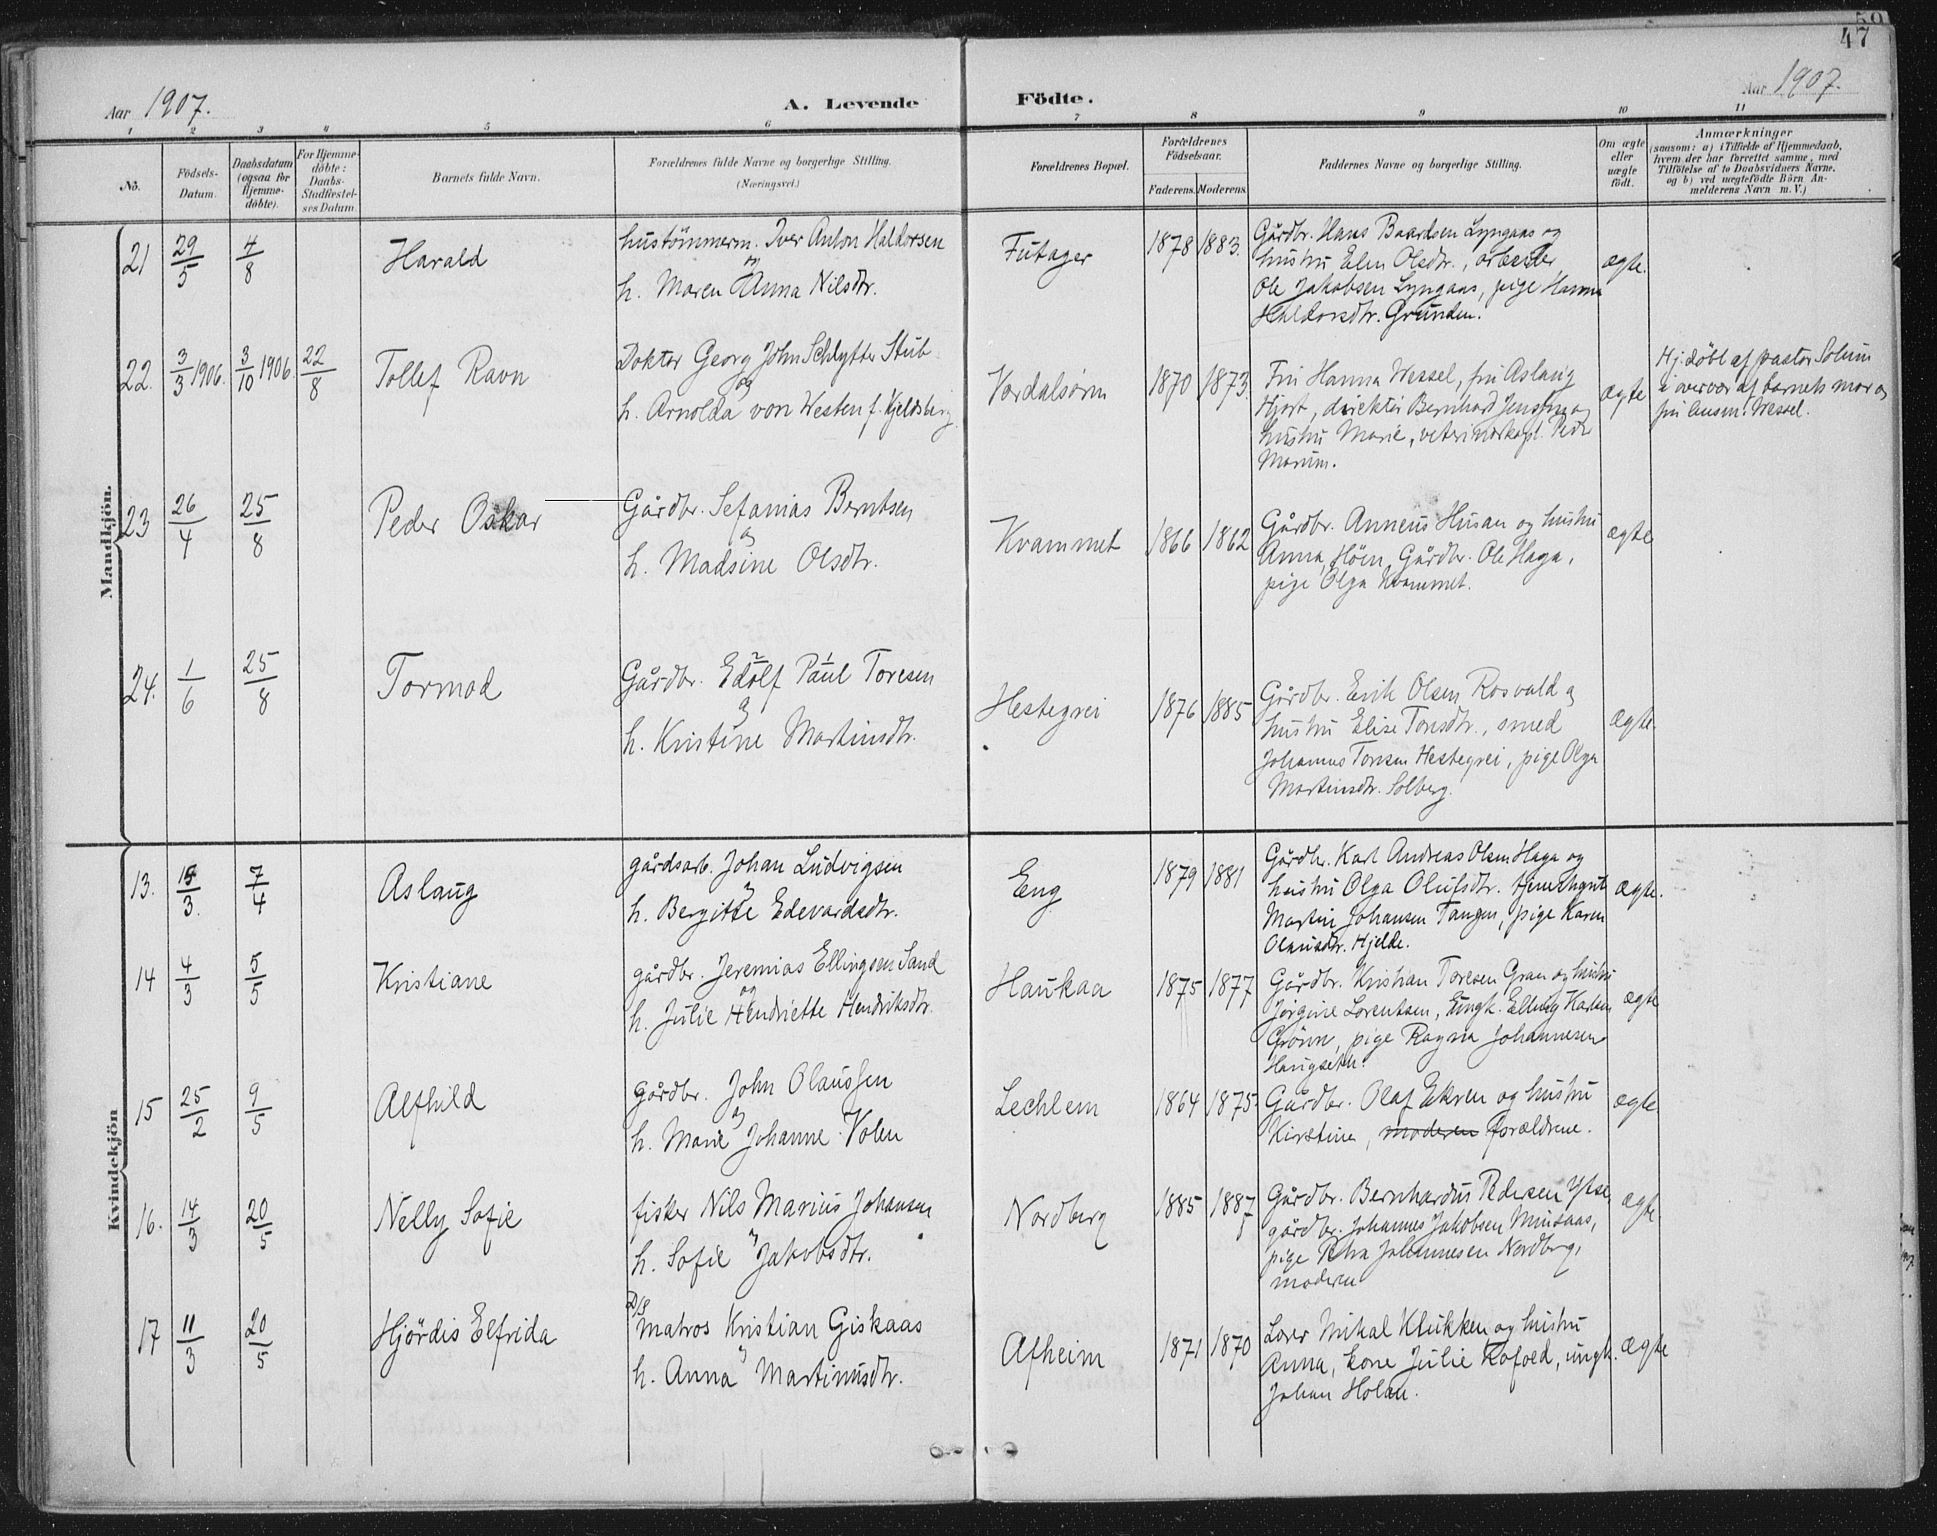 50
47
Aar 1907.
A. Levende
Födte.
Aar 1907.
1 2 3 4 5 6 7 8 9 10 11
No.
Födsels-
Datum.
Daabsdatum
(ogsaa for
Hjemme-
döbte).
For Hjemme-
döbte:
Daabs-
Stadfæstel-
ses Datum
Barnets fulde Navn.
Forældrenes fulde Navne og borgerlige Stilling.
(Næringsvei.)
Forældrenes Bopæl.
Forældrenes
Födselsaar.
Faderens. Moderens.
Faddernes Navne og borgerlige Stilling.
Om ægte
eller
uægte
födt.
Anmærkninger
(saasom: a) i Tilfælde af Hjemmedaab,
hvem der har forrettet samme, med
Tilföielse af to Daabsvidners Navne,
og b) ved uægtefödte Börn An-
melderens Navn m. V.)
Mandkjön.
21 29/5 4/8 Harald
hustömmerm. Iver Anton Haldorsen
og
h. Maren Anna Nilsdtr.
Futager 1878 1883.
Gårdbr. Hans Baardsen Lyngaas og
hustru Elen Olsdtr., arbeider
Ole Jakobsen Lyngaas, pige Hanna
Haldorsdtr. Grunden.
ægte.
22. 3/3 1906. 3/10 1906. 22/8 Tollef Ravn
Doktor Georg John Schlytter Stub
og
h. Arnolda von Westen f. Kjeldsberg
Værdalsøren 1870 1873.
Fru Hanna Wessel, fru Aslaug
Hjort, direktör Bernhard Jenssen og
hustru Marie, veterinærkapt. Peder
Morum.
ægte
Hj.döbt af pastor Solum
i overvær af barnets mor og
fru Wessel.
23 26/4 25/8 Peder Oskar
Gårdbr. Sefanias Berntsen
og
h. Madsine Olsdtr.
Kvammet 1866 1862
Gårdbr. Anneus Husan og hustru
Anna, Höen, Gårdbr. Ole Haga,
pige Olga Kvammet.
ægte
24. 1/6 25/8 Tormod
2 1
Gårdbr. Edolf Paul Toresen
og
h. Kristine Martinsdtr.
Hestegrei 1876 1885
Gårdbr. Erik Olsen Rosvald og
hustru Elise Toresdtr., smed
Johannes Toresen Hestegrei, pige Olga
Martinsdtr. Solberg.
ægte.
Kvindekjön
13. 15/3. 7/4 Aslaug
gårdsarb. Johan Ludvigsen
og
h. Bergitte Edevardsdtr.
Eng 1879 1881
Gårdbr. Karl Andreas Olsen Haga og
hustru Olga Olufsdtr. tjenestegut
Martin Johansen Tangen, pige Karen
Olausdtr. Hjelde.
ægte.
14 4/3 5/5 Kristiane
gårdbr. Jeremias Ellingsen Sand
og
h. Julie Henriette Hendriksdtr.
Haukaa 1875 1877
Gårdbr. Kristian Toresen Gran og hustru
Jørgine Lorentsen, ungk. Elling Karlsen
Grönn, pige Ragna Johannesen
Haugseth.
ægte
15 25/2 9/5 Alfhild
Gårdbr. John Olaussen
og
h. Marie Johanne Volen
Lechlem 1864 1875.
Gårdbr. Olaf Ekren og hustru
Kirstine, moderen forældrene.
ægte
16. 14/3 20/5 Nelly Sofie
fisker Nils Marius Johansen
og
h. Sofie Jakobsdtr.
Nordberg 1885 1887
Gårdbr. Bernhardus Pedersen Ytse
gårdbr. Johannes Jakobsen Minsaas,
pige Petra Johannesen Nordberg,
moderen
ægte.
17 11/3 20/5 Hjördis Elfrida
D/S
Matros Kristian Giskaas
og
h. Anna Martinusdtr.
Afheim 1871 1870
Lærer Mikal Klukken og hustru
Anna, kone Julie Kofoed, ungk.
Johan Holan.
ægte